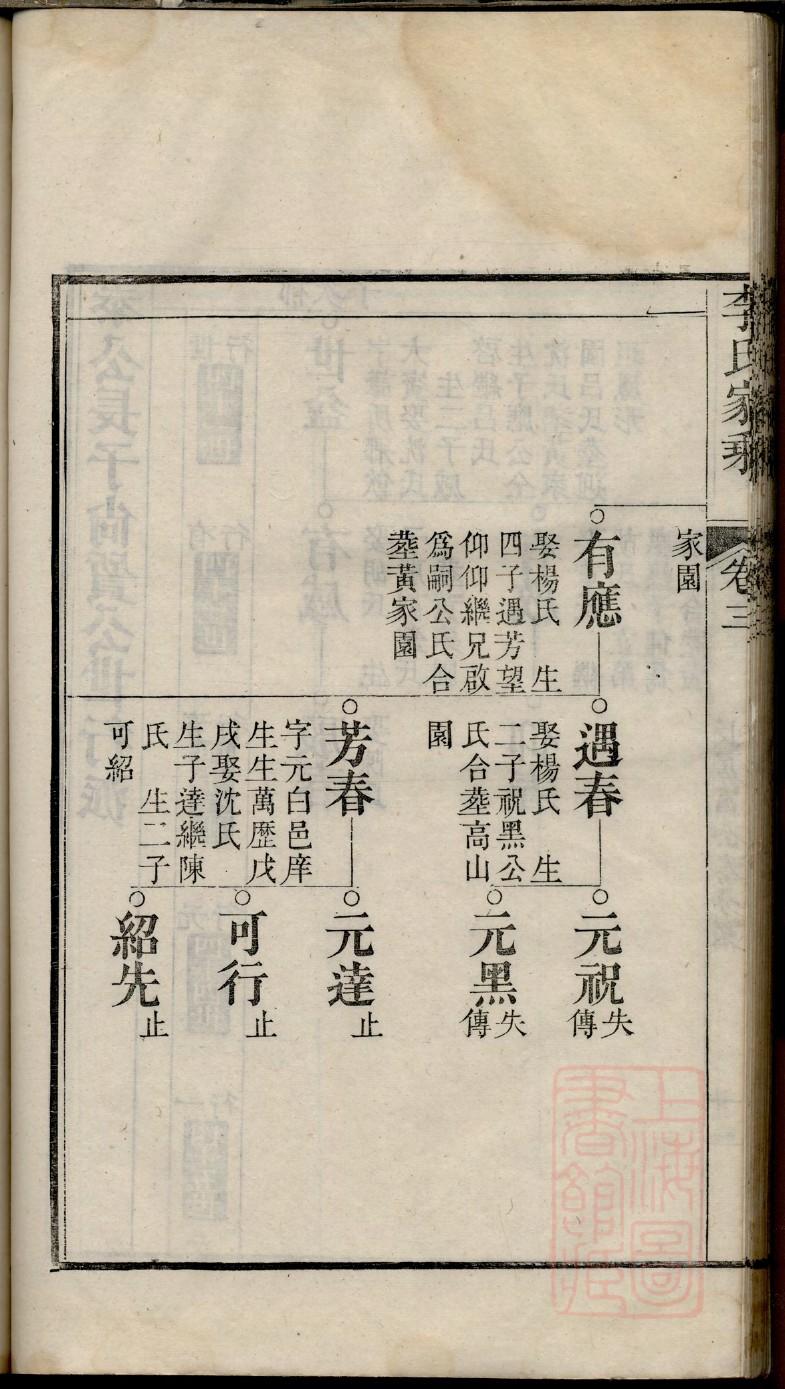 李氏家乘
卷三
家園
有應
娶楊氏　生
四子遇芳望
仰仰繼兄啟
爲嗣公氏合
塟黃家園
遇春
娶楊氏　生
二子祝黑公
氏合塟高山
園
元祝
失
傳
元黑
失
傳
芳春
字元白邑庠
生生萬歷戊
戌娶沈氏
生子達繼陳
氏　生二子
可紹
元達
止
可行
止
紹先
止
上海圖
書館藏